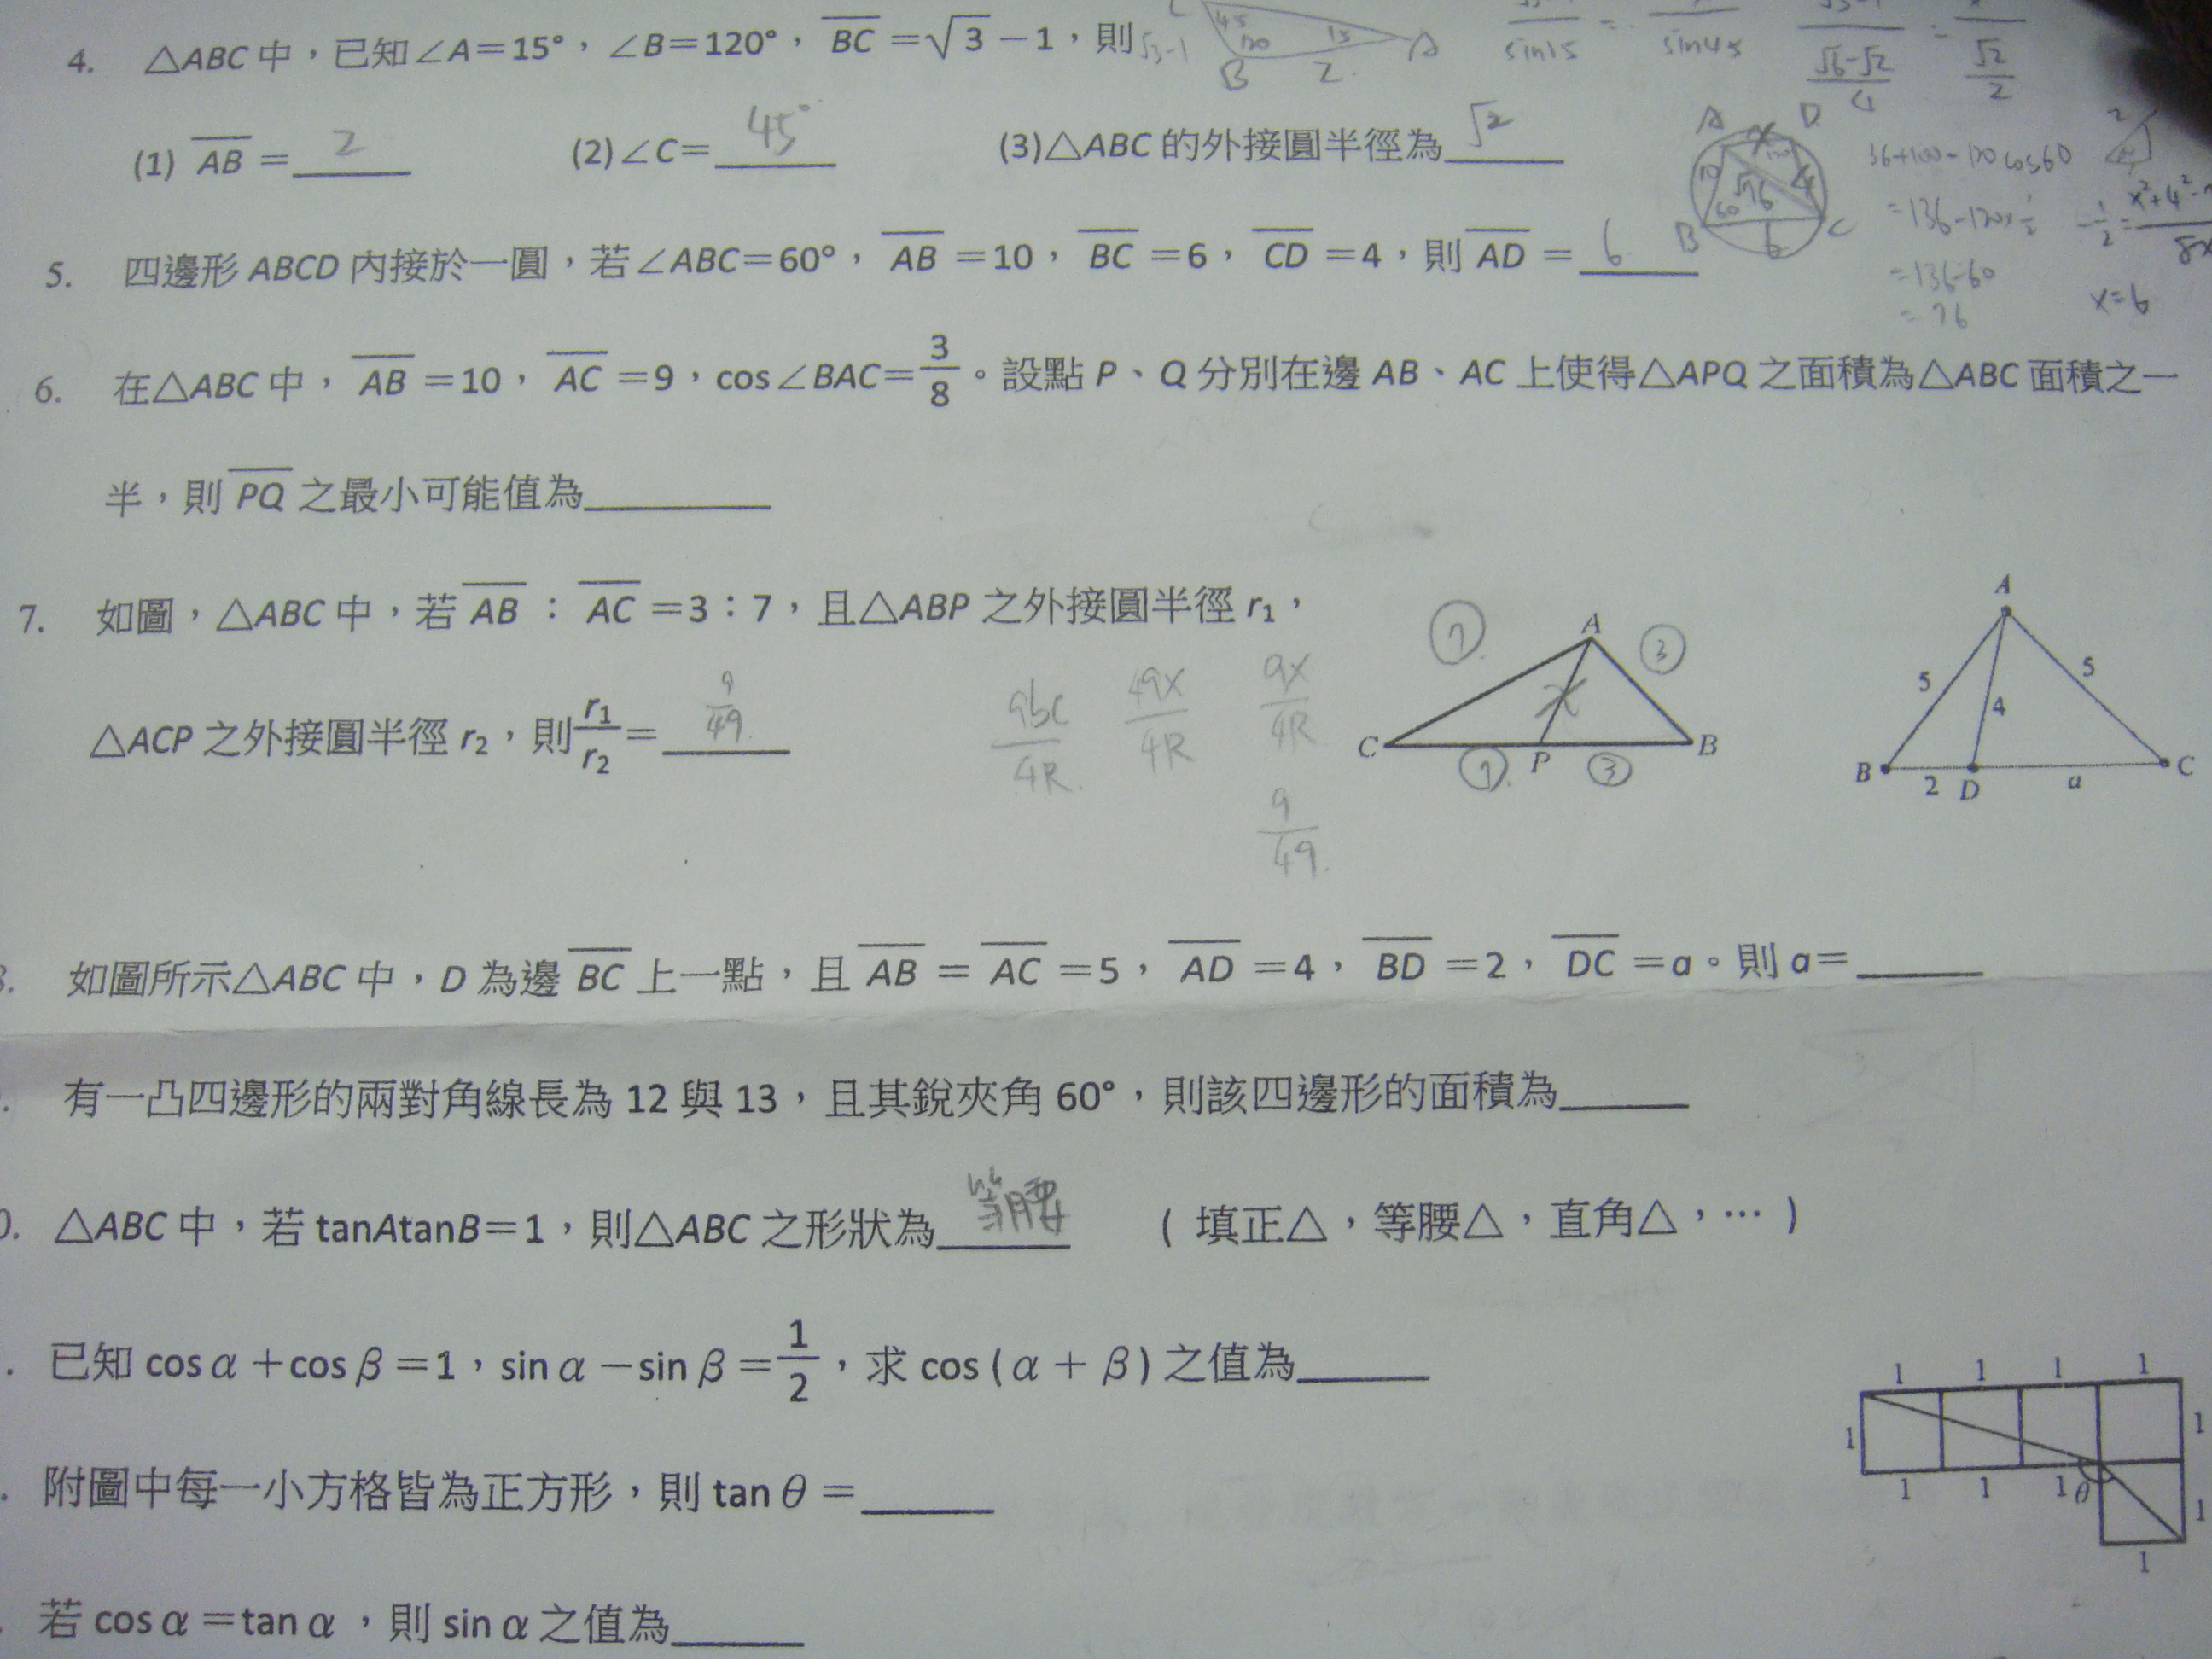 4. △ABC 中，已知∠A＝15°，∠B＝120°，BC＝√3－1，則
(1) AB＝2 (2)∠C＝45° (3)△ABC 的外接圓半徑為√2
√3-1 45 120 15 B 2 A
sin15 = sin45
√6-√2 / 4 = √2 / 2
A x D 10 √76 4 60 120 B 6 C
36+100-120cos60
=136-120×1/2
=136-60
=76
x=6
5. 四邊形 ABCD 內接於一圓，若∠ABC＝60°，AB＝10，BC＝6，CD＝4，則 AD＝6
6. 在△ABC 中，AB＝10，AC＝9，cos∠BAC＝3/8。設點 P、Q 分別在邊 AB、AC 上使得△APQ 之面積為△ABC 面積之一
半，則 PQ 之最小可能值為______
7. 如圖，△ABC 中，若 AB：AC＝3：7，且△ABP 之外接圓半徑 r₁，
△ACP 之外接圓半徑 r₂，則 r₁/r₂＝9/49
abc/4R 49x/4R 9x/4R
9/49
⑦ A ③ x C ⑦ P ③ B
A 5 4 5 B 2 D a C
如圖所示△ABC 中，D 為邊 BC 上一點，且 AB＝AC＝5，AD＝4，BD＝2，DC＝a。則 a＝______
有一凸四邊形的兩對角線長為 12 與 13，且其銳夾角 60°，則該四邊形的面積為______
△ABC 中，若 tanAtanB＝1，則△ABC 之形狀為等腰 ( 填正△，等腰△，直角△，… )
已知 cos α＋cos β＝1，sin α－sin β＝1/2，求 cos (α＋β) 之值為______
附圖中每一小方格皆為正方形，則 tan θ＝______
1 1 1 1
1 1
1 1 1 θ 1
1
若 cos α＝tan α，則 sin α 之值為______